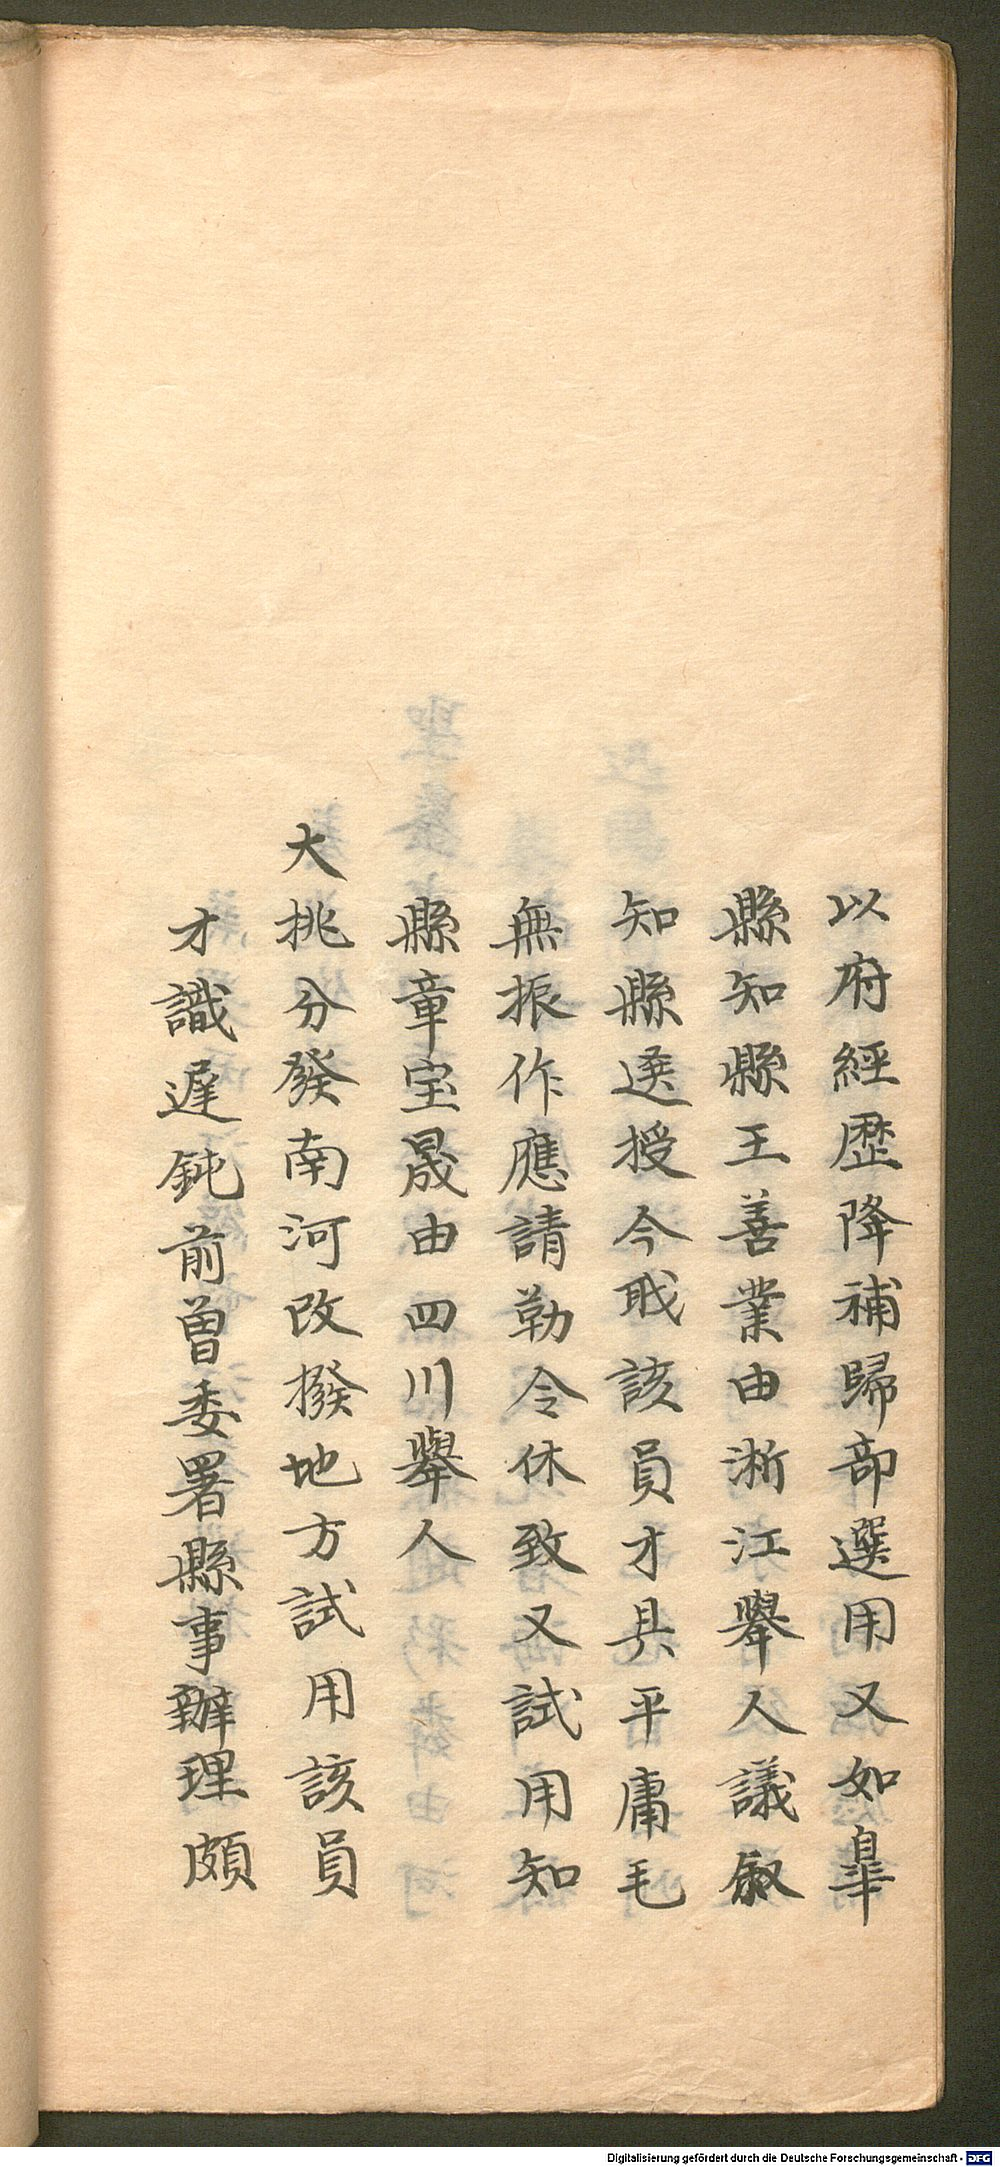 以府經歷降補歸部選用又如皐
縣知縣王善業由淅江舉人議叙
知縣選授今戝該員才具平庸毛
無振作應請勒令休致又試用知
縣章宝晟由四川舉人
大挑分發南河改撥地方試用該員
才識遲鈍前曾委署縣事辦理頗
Digitalisierung gefördert durch die Deutsche Forschungsgemeinschaft - DFG